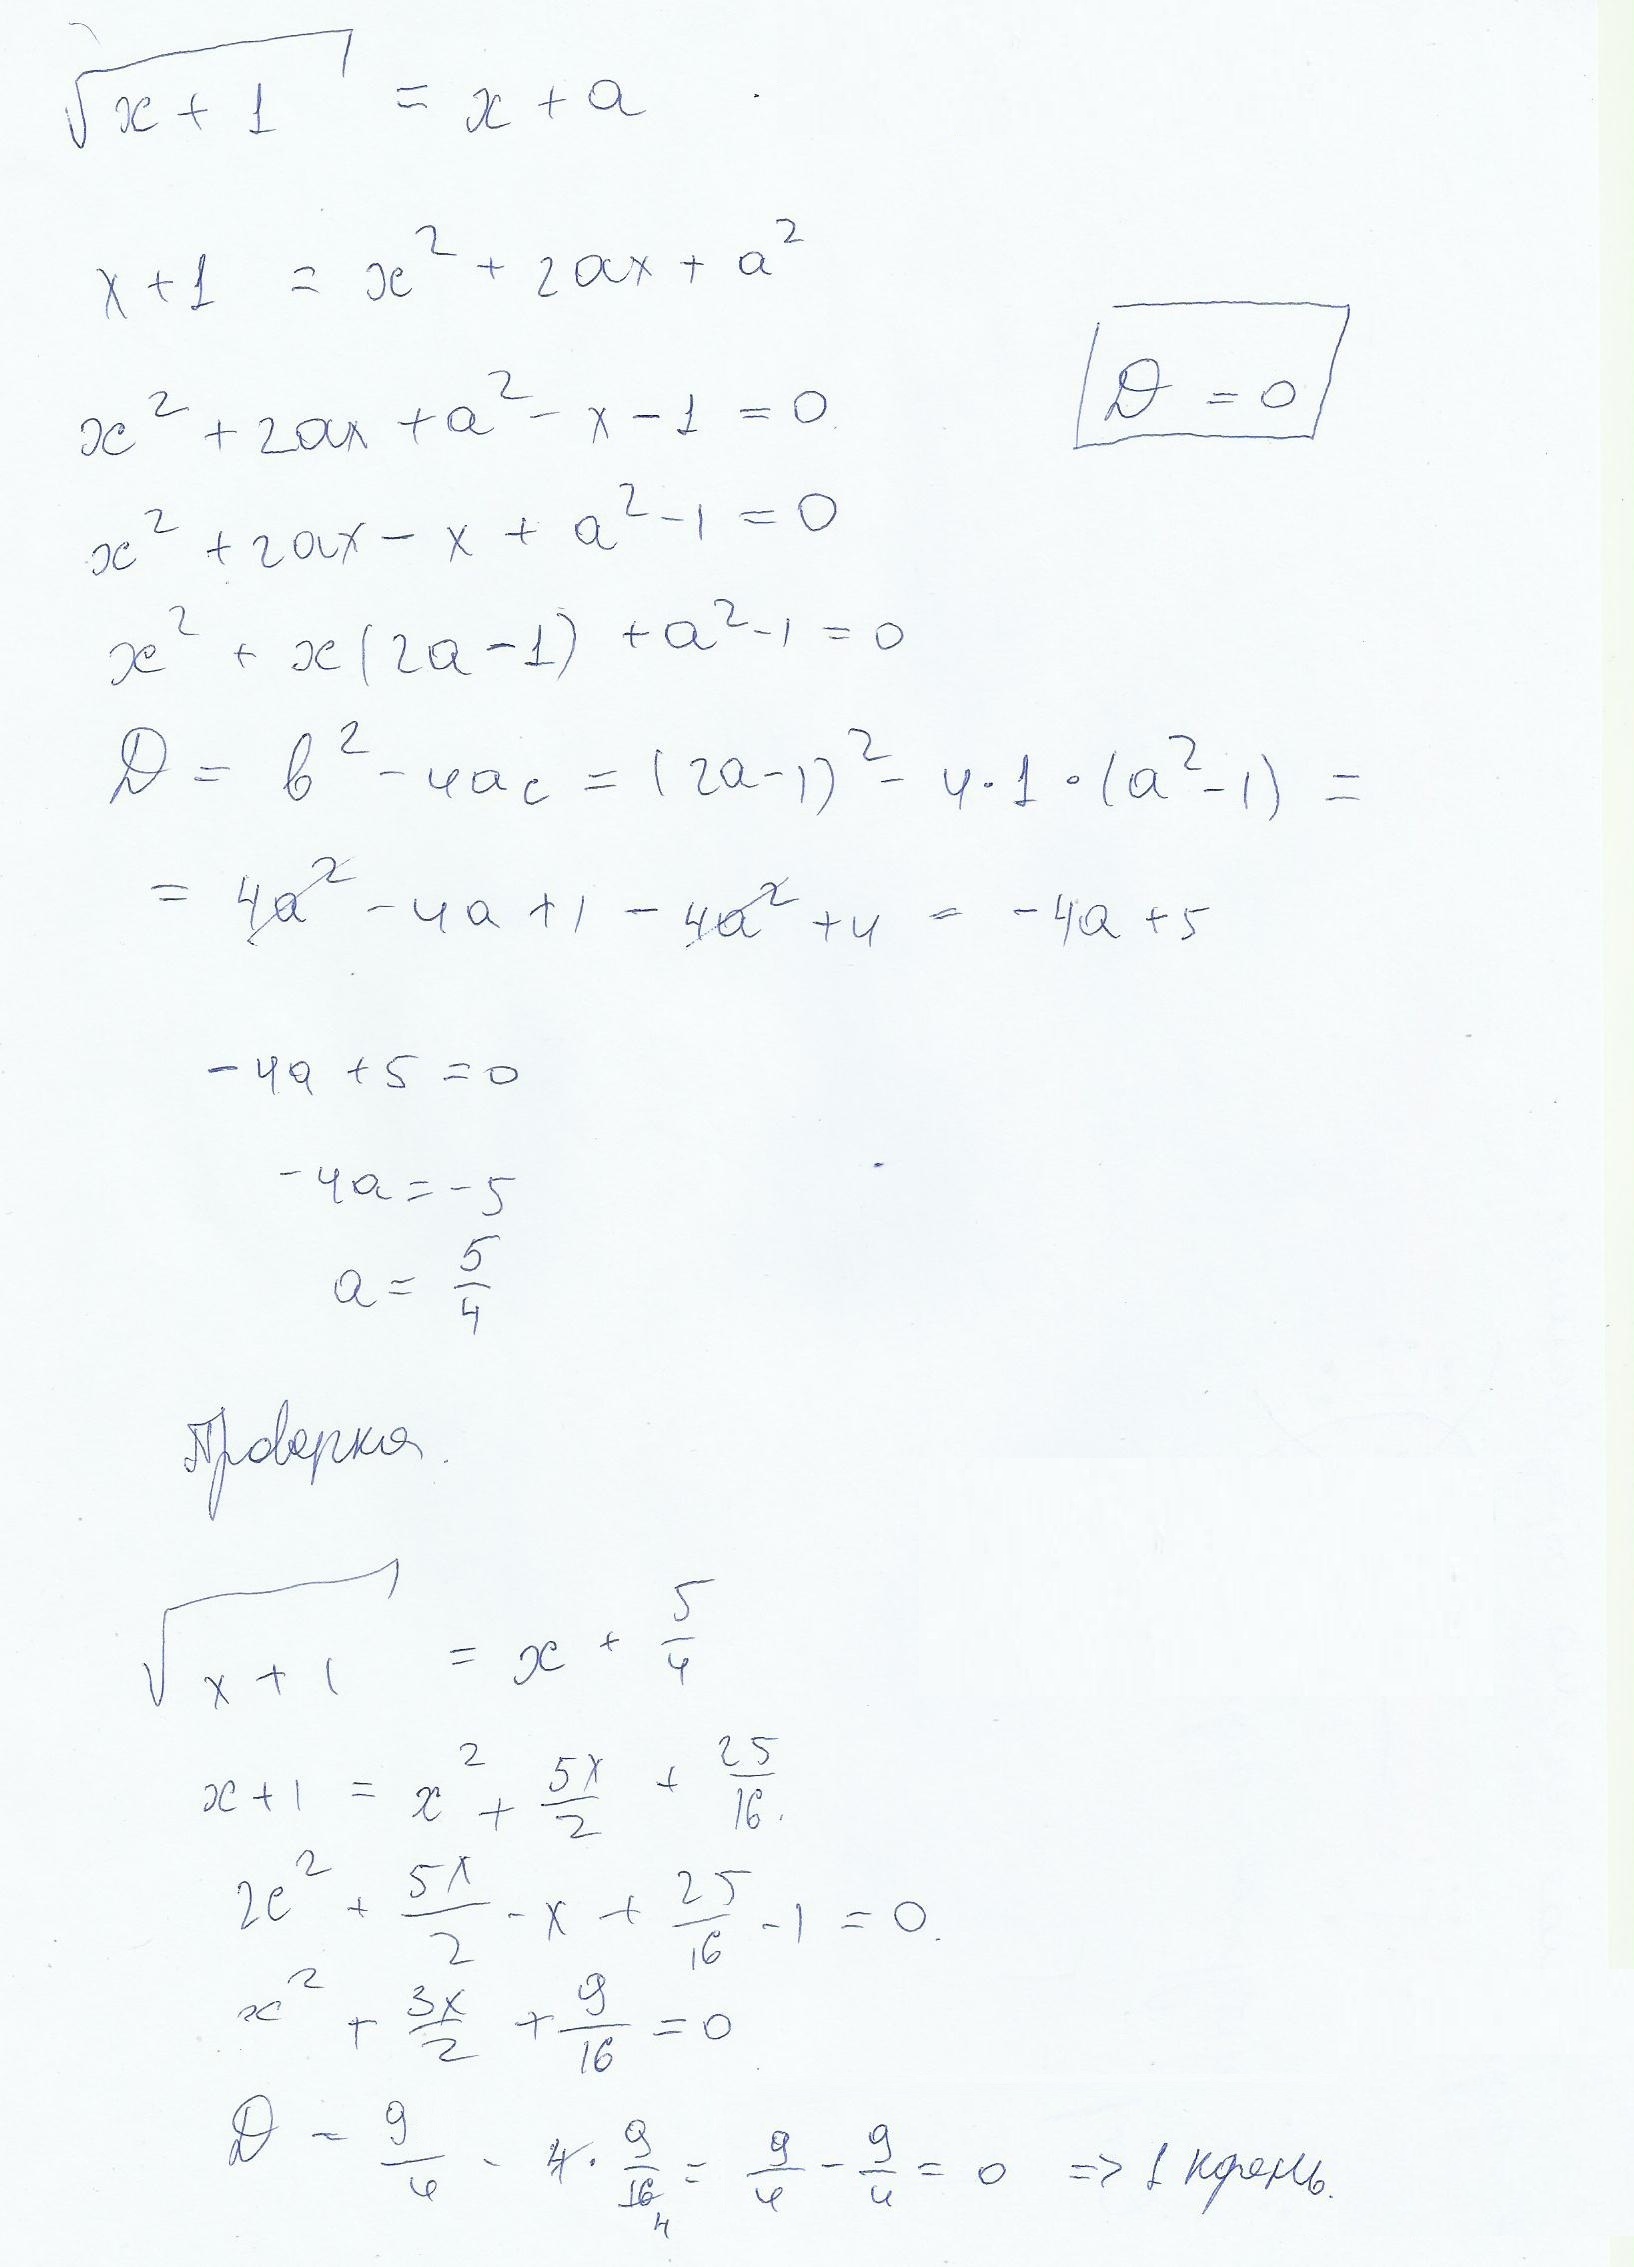 √(x + 1) = x + a
x + 1 = x² + 2ax + a²
D = 0
x² + 2ax + a² - x - 1 = 0
x² + 2ax - x + a² - 1 = 0
x² + x(2a - 1) + a² - 1 = 0
D = b² - 4ac = (2a - 1)² - 4·1·(a² - 1) =
= 4a² - 4a + 1 - 4a² + 4 = -4a + 5
-4a + 5 = 0
-4a = -5
a = 5/4
Проверка.
√(x + 1) = x + 5/4
x + 1 = x² + 5x/2 + 25/16.
x² + 5x/2 - x + 25/16 - 1 = 0.
x² + 3x/2 + 9/16 = 0
D = 9/4 - 4·9/16 4 = 9/4 - 9/4 = 0 => 1 корень.